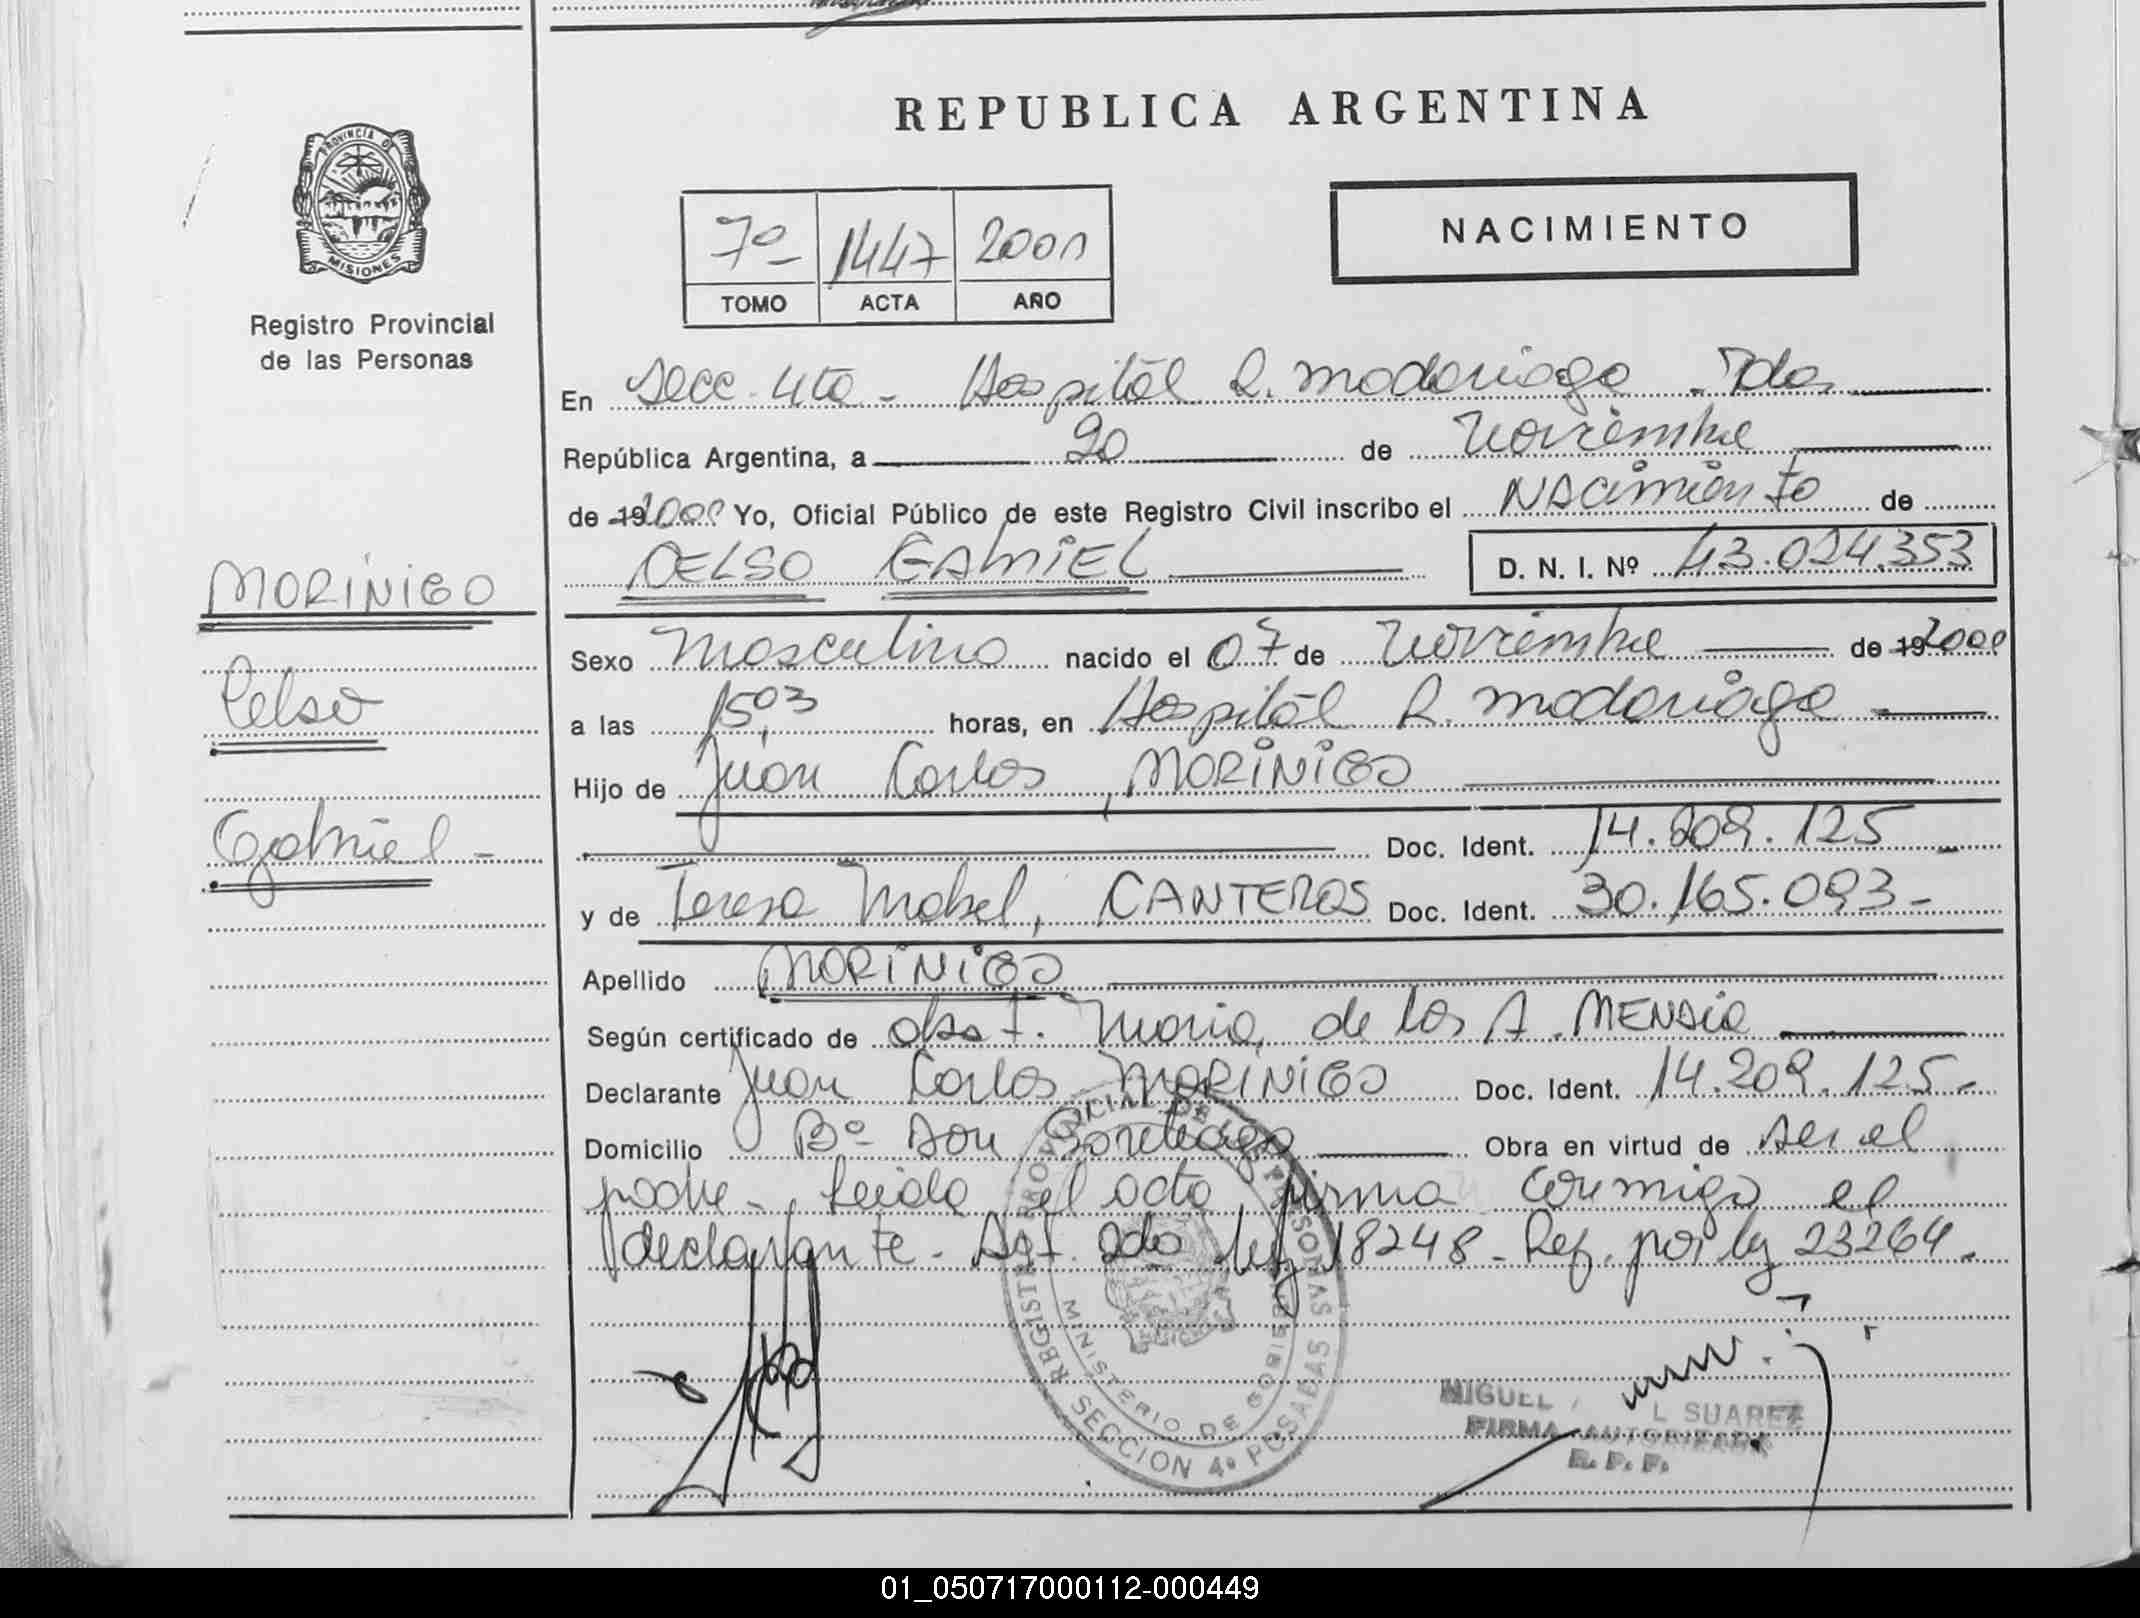 REPUBLICA ARGENTINA
PROVINCIA DE
MISIONES
Registro Provincial
de las Personas
7º 1447 2000
TOMO ACTA AÑO
NACIMIENTO
En Secc. 4ta - Hospital R. Madariaga - Pdas
República Argentina, a 20 de Noviembre
de 19 2000 Yo, Oficial Público de este Registro Civil inscribo el NAcimiento de
CELSO GABRIEL D. N. I. Nº 43.024.353
MORINIGO
Celso
Gabriel -
Sexo Masculino nacido el 07 de Noviembre de 19 2000
a las 15,03 horas, en Hospital R. Madariaga
Hijo de Juan Carlos, MORINIGO
Doc. Ident. 14.209.125
y de Teresa Mabel, CANTEROS Doc. Ident. 30.165.093 -
Apellido MORINIGO
Según certificado de obst. Maria de los A. MENDIA
Declarante Juan Carlos MORINIGO Doc. Ident. 14.209.125 -
Domicilio Bº Don Santiago Obra en virtud de ser el
padre - Leida el acta firma conmigo el
declarante - Art. 2do ley 18248 - Ref. por ley 23264 -
REGISTRO PROVINCIAL DE LAS PERSONAS
MINISTERIO DE GOBIERNO
SECCION 4º POSADAS
MIGUEL L SUAREZ
FIRMA AUTORIZADA
R. P. P.
01_050717000112-000449